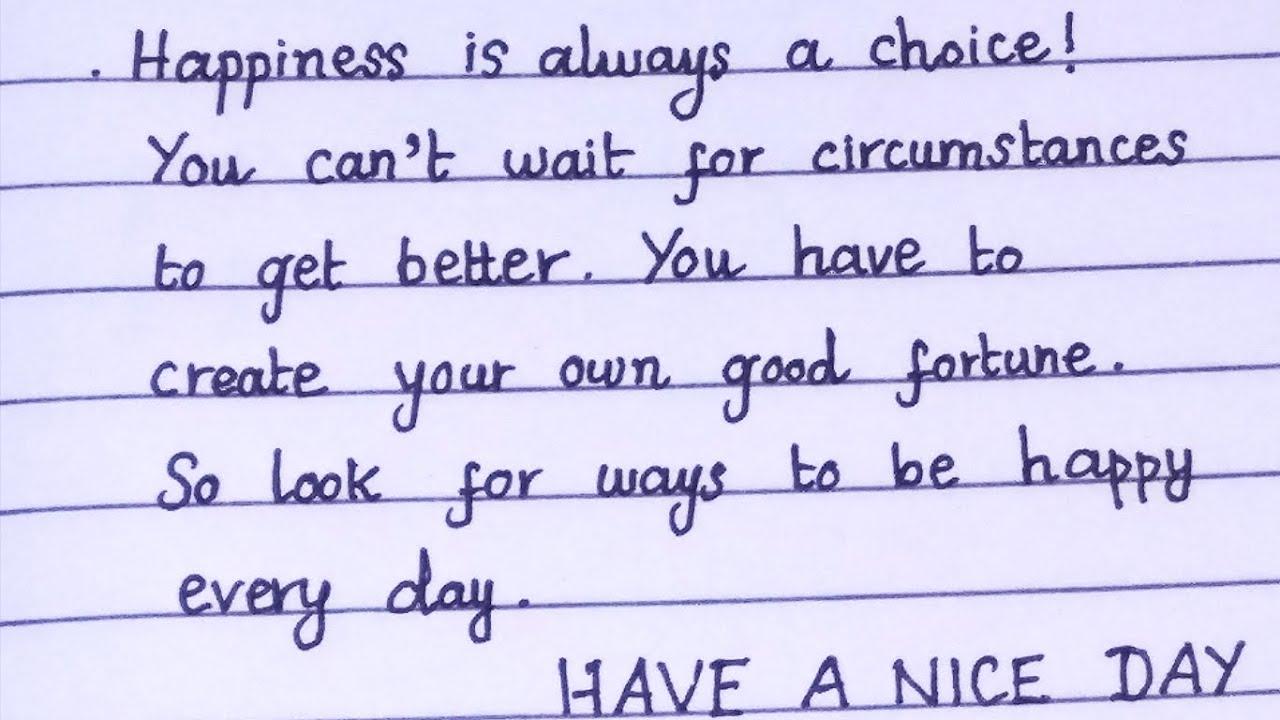 . Happiness is always a choice!
You can't wait for circumstances
to get better. You have to
create your own good fortune.
So look for ways to be happy
every day.
HAVE A NICE DAY